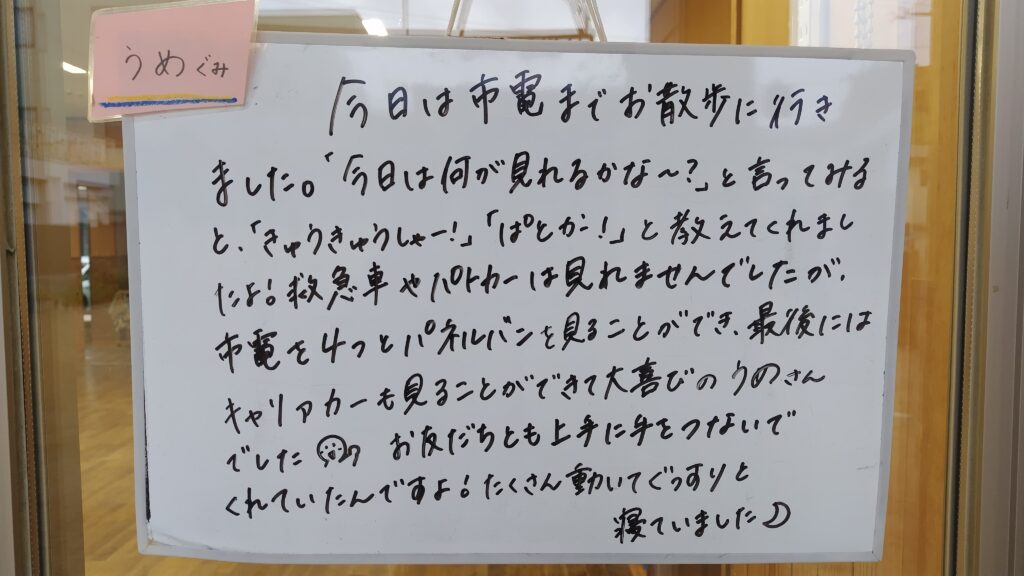 うめぐみ
今日は市電までお散歩に行き
ました。「今日は何が見れるかな〜?」と言ってみる
と、「きゅうきゅうしゃー!」「ぱとかー!」と教えてくれまし
たよ!救急車やパトカーは見れませんでしたが、
市電を4つとパネルバンを見ることができ、最後には
キャリアカーも見ることができて大喜びのうめさん
でした お友だちとも上手に手をつないで
くれていたんですよ!たくさん動いてぐっすりと
寝ていました